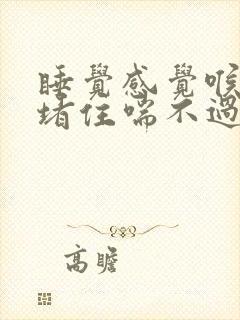 睡覺感覺喉
堵住喘不過
高瞻